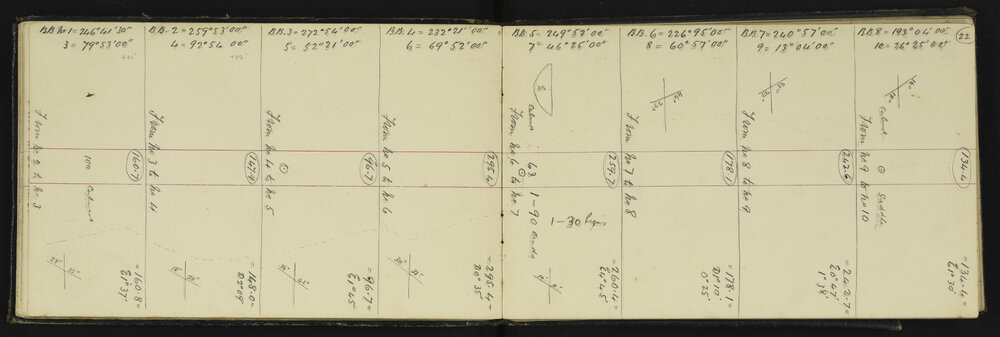 B.B. No 1 = 246°41'30"
3 = 79°53'00"
From No 2 to No 3
100
Cabinet
160.7
= 160.8 =
E1°37'
B.B. 2 = 259°53'00"
4 = 92°54 00"
From No 3 to No 4
= 148.0 =
D2°09'
B.B. 3 = 272°54'00"
5 = 52°21'00"
From No 4 to No 5
96.7
= 96.7 =
E1°45'
B.B. 4 = 232°21'00"
6 = 69°52'00"
From No 5 to No 6
295.4
= 295.4 =
D0°35'
B.B. 5 = 249°52'00"
7 = 46°25'00"
From No 6 to No 7
63
1-90
1-30
259.7
= 260.4 =
E4°45'
B.B. 6 = 226°95'00"
8 = 60°57'00"
From No 7 to No 8
178.1
= 178.1 =
D1°10'
0°25'
B.B. 7 = 240°57'00"
9 = 13°04'00"
From No 8 to No 9
242.6
= 242.7 =
E0°47'
1°38'
B.B. 8 = 193°04'00"
10 = 26°25'00"
22
From No 9 to No 10
Saddle
134.4
= 134.4 =
E1°30'